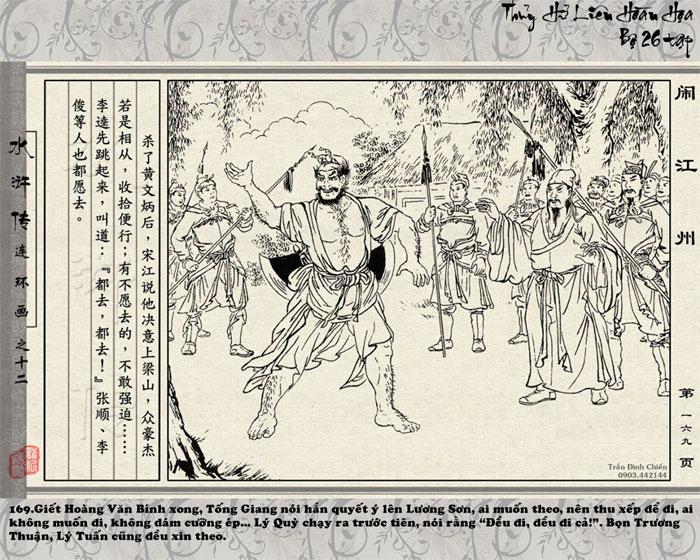 Thủy Hử Liên Hoàn Họa
Bộ 26 tập
闹江州
水浒传连环画之十二
杀了黄文炳后，宋江说他决意上梁山，众豪杰
若是相从，收拾便行；有不愿去的，不敢强迫……
李逵先跳起来，叫道：『都去，都去！』张顺、李
俊等人也都愿去。
第一六九页
Trần Đình Chiến
0903.442144
169.Giết Hoàng Văn Bính xong, Tống Giang nói hắn quyết ý lên Lương Sơn, ai muốn theo, nên thu xếp để đi, ai
không muốn đi, không dám cưỡng ép... Lý Quỳ chạy ra trước tiên, nói rằng “Đều đi, đều đi cả!”. Bọn Trương
Thuận, Lý Tuấn cũng đều xin theo.